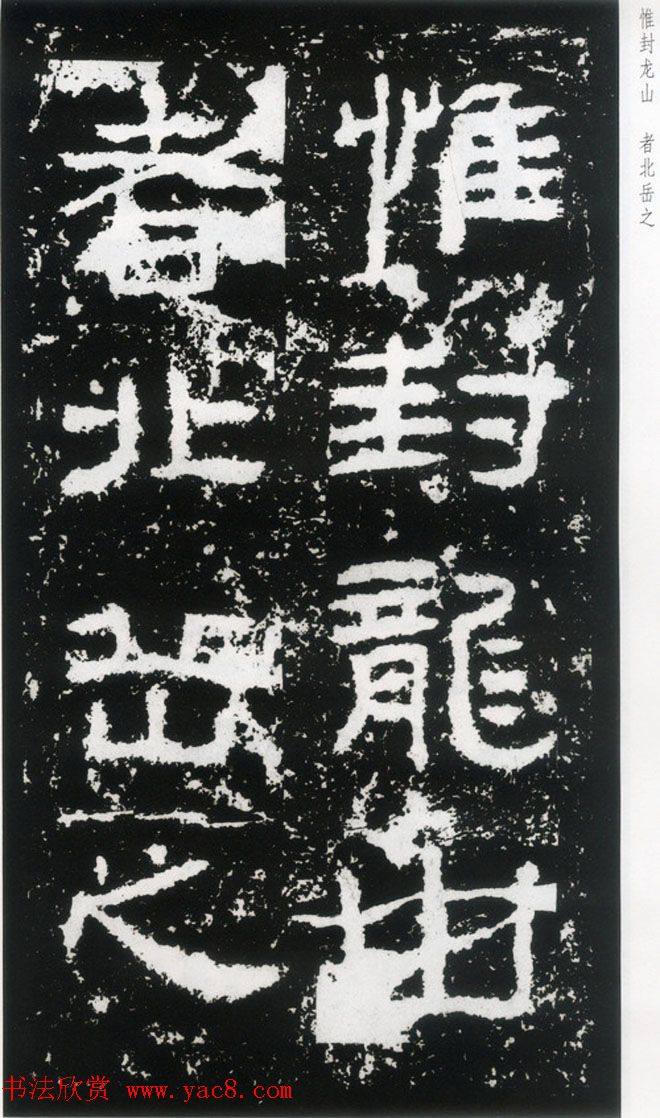 惟封龍山
者北岳之
惟封龙山 者北岳之
书法欣赏 www.yac8.com